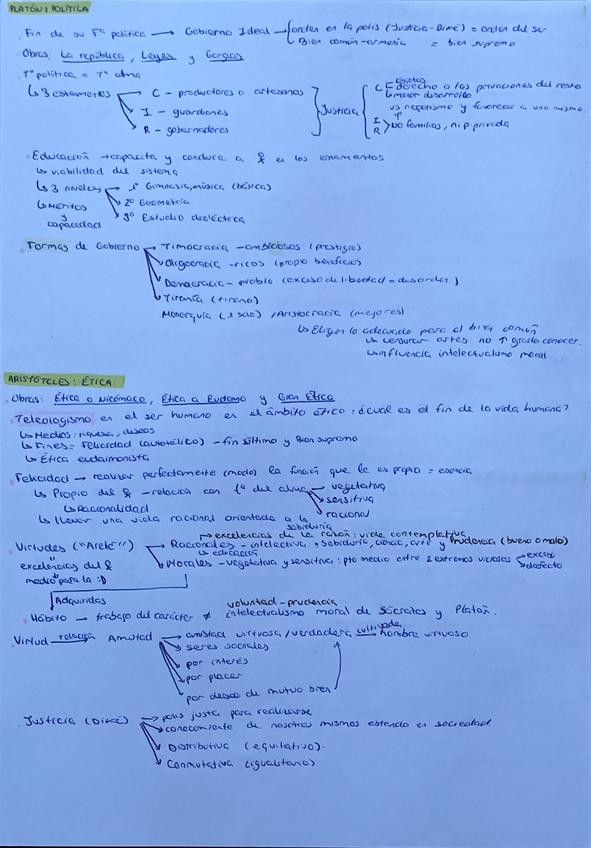 PLATÓN: POLÍTICA
Fin de su Fª política → Gobierno Ideal → orden en la polis (Justicia-Diké) = orden del ser
Bien común-armonía = bien supremo
Obras: La república, Leyes y Gorgias
Tª política = Tª alma
↳ 3 estamentos → C - productores o artesanos
I - guardianes
R - gobernadores
Justicia
derecho a las privaciones del resto
↳ menor desarrollo
vs nepotismo y favorecer a uno mismo
I R > No familias, ni p. privada
Educación → capacita y conduce a en los estamentos
↳ viabilidad del sistema
↳ 3 niveles → 1º Gimnasia, música (básica)
↳ méritos y capacidad
2º Geometría
3º Estudio dialéctica
Formas de Gobierno → Timocracia - ambiciosos (prestigio)
Oligocracia - ricos (propio beneficio)
Democracia - pueblo (exceso de libertad = desorden)
Tiranía (tirano)
Monarquía (1 solo) / Aristocracia (mejores)
↳ Eligen lo adecuado para el bien común
↳ censurar artes no ↑ grado conocer.
↳ influencia intelectualismo moral
ARISTÓTELES: ÉTICA
Obras: Ética a Nicómaco, Ética a Eudomo y Gran Ética
Teleologismo en el ser humano en el ámbito ético: ¿cuál es el fin de la vida humana?
↳ Medios: riqueza, deseos
↳ Fines = Felicidad (autotélico) - fin último y Bien supremo
↳ Ética eudaimonista
Felicidad → realizar perfectamente (modo) la función que le es propia = esencia
↳ Propio del - relación con fª del alma → vegetativa
sensitiva
racional
↳ Racionalidad
↳ llevar una vida racional orientada a la sabiduría
→ excelencias de la razón: vida contemplativa
Virtudes ("Areté") → Racionales - intelectiva: sabiduría, ciencia, arte y Prudencia (bueno o malo)
↳ educación
excelencias del
medio para la :D
Morales - vegetativa y sensitiva: pto medio entre 2 extremos viciosos → exceso
defecto
Adquiridas
voluntad-prudencia
Hábito → trabajo del carácter ≠ intelectualismo moral de Sócrates y Platón.
Virtud relación → Amistad → amistad virtuosa/verdadera cultivada → hombre virtuoso
seres sociales
por interés
por placer
por deseo de mutuo bien
Justicia (Diké) → polis justa para realizarse
conocimiento de nosotros mismos estando en sociedad
Distributiva (equitativo).
Conmutativa (igualitario)